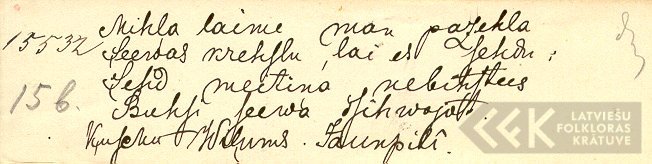 15532 Mihla laime man pazehla
Seewas krehslu, lai es sehdu;
Sehd meitina nebihstees
Buhsi seewa dsihwojot.
156.
Wilums. Jaunpilī.
LATVIEŠU
FOLKLORAS
KRĀTUVE